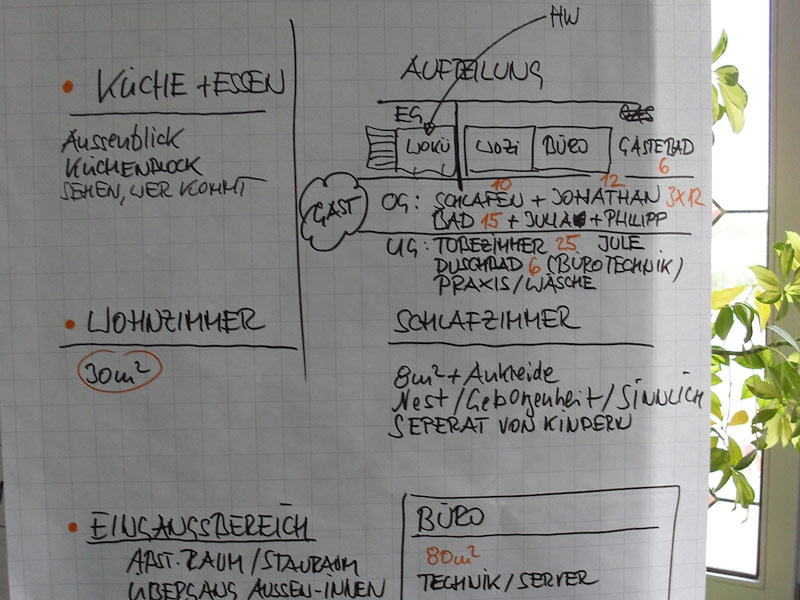 • KÜCHE + ESSEN
Aussenblick
KÜCHENBLOCK
SEHEN, WER KOMMT
HW
AUFTEILUNG
EG
WOKÜ
WOZI
BÜRO
GÄSTEBAD
6
10
12
GAST
OG: SCHLAFEN + JONATHAN 3x12
BAD 15 + JULIA + PHILIPP
UG: TOBEZIMMER 25 JULE
DUSCHBAD 6 (BÜROTECHNIK)
PRAXIS/WÄSCHE
• WOHNZIMMER
30m²
SCHLAFZIMMER
8m² + Ankleide
Nest/Geborgenheit/SINNLICH
SEPERAT VON KINDERN
• EINGANGSBEREICH
ABST.RAUM/STAURAUM
ÜBERGANG AUSSEN-INNEN
BÜRO
80m²
TECHNIK/SERVER